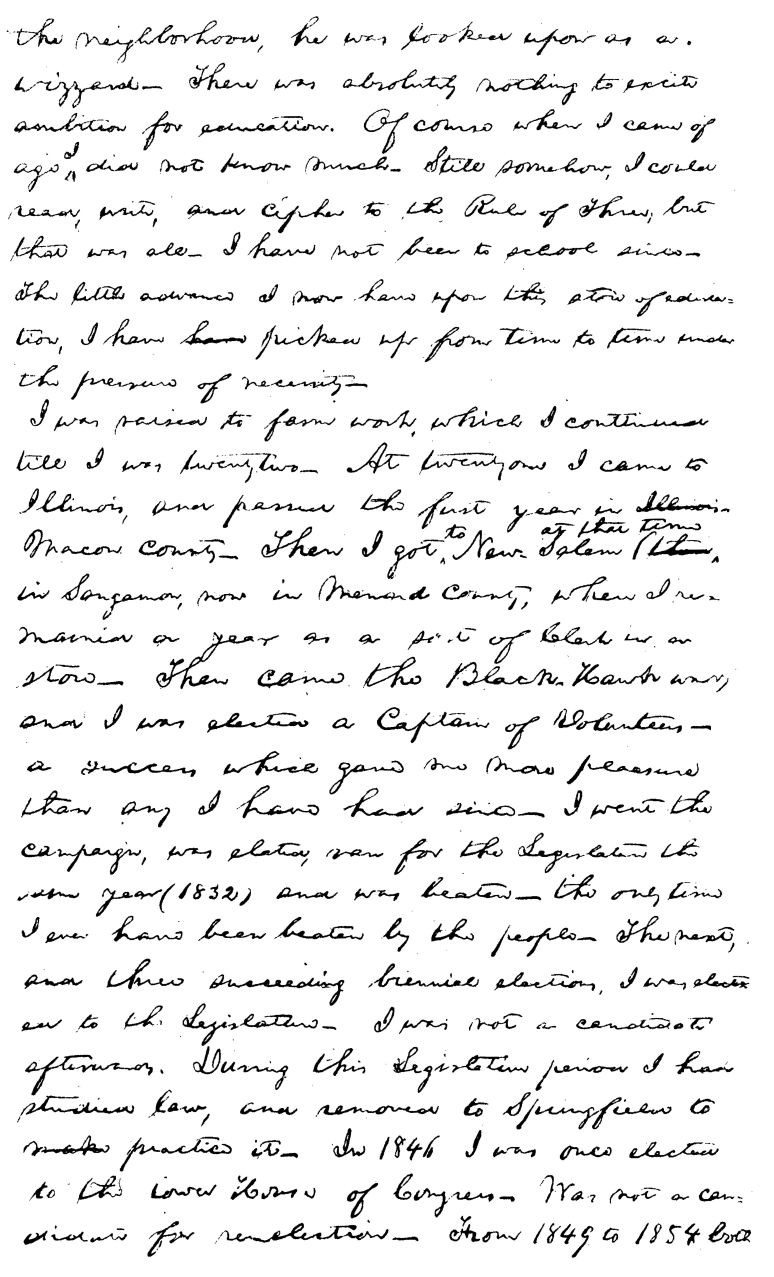 the neighborhood, he was looked upon as a
wizzard— There was absolutely nothing to excite
ambition for education. Of course when I came of
age, I did not know much— Still somehow, I could
read, write, and cipher to the Rule of Three, but
that was all— I have not been to school since—
The little advance I now have upon this store of educa=
tion, I have have picked up from time to time under
the pressure of necessity—
I was raised to farm work, which I continued
till I was twentytwo— At twentyone I came to
Illinois, and passed the first year in Illinois—
Macon County— Then I got to New-Salem (then at that time
in Sangamon, now in Menard County, where I re-
mained a year as a sort of Clerk in a
store— Then came the Black-Hawk war,
and I was elected a Captain of Volunteers—
a success which gave me more pleasure
than any I have had since— I went the
campaign, was elated, ran for the Legislature the
same year (1832) and was beaten— the only time
I ever have been beaten by the people— The next,
and three succeeding biennial elections, I was elect=
ed to the Legislature— I was not a candidate
afterwards. During this Legislative period I had
studied law, and removed to Springfield to
make practice it— In 1846 I was once elected
to the lower House of Congress— Was not a can=
didate for reelection— From 1849 to 1854 both